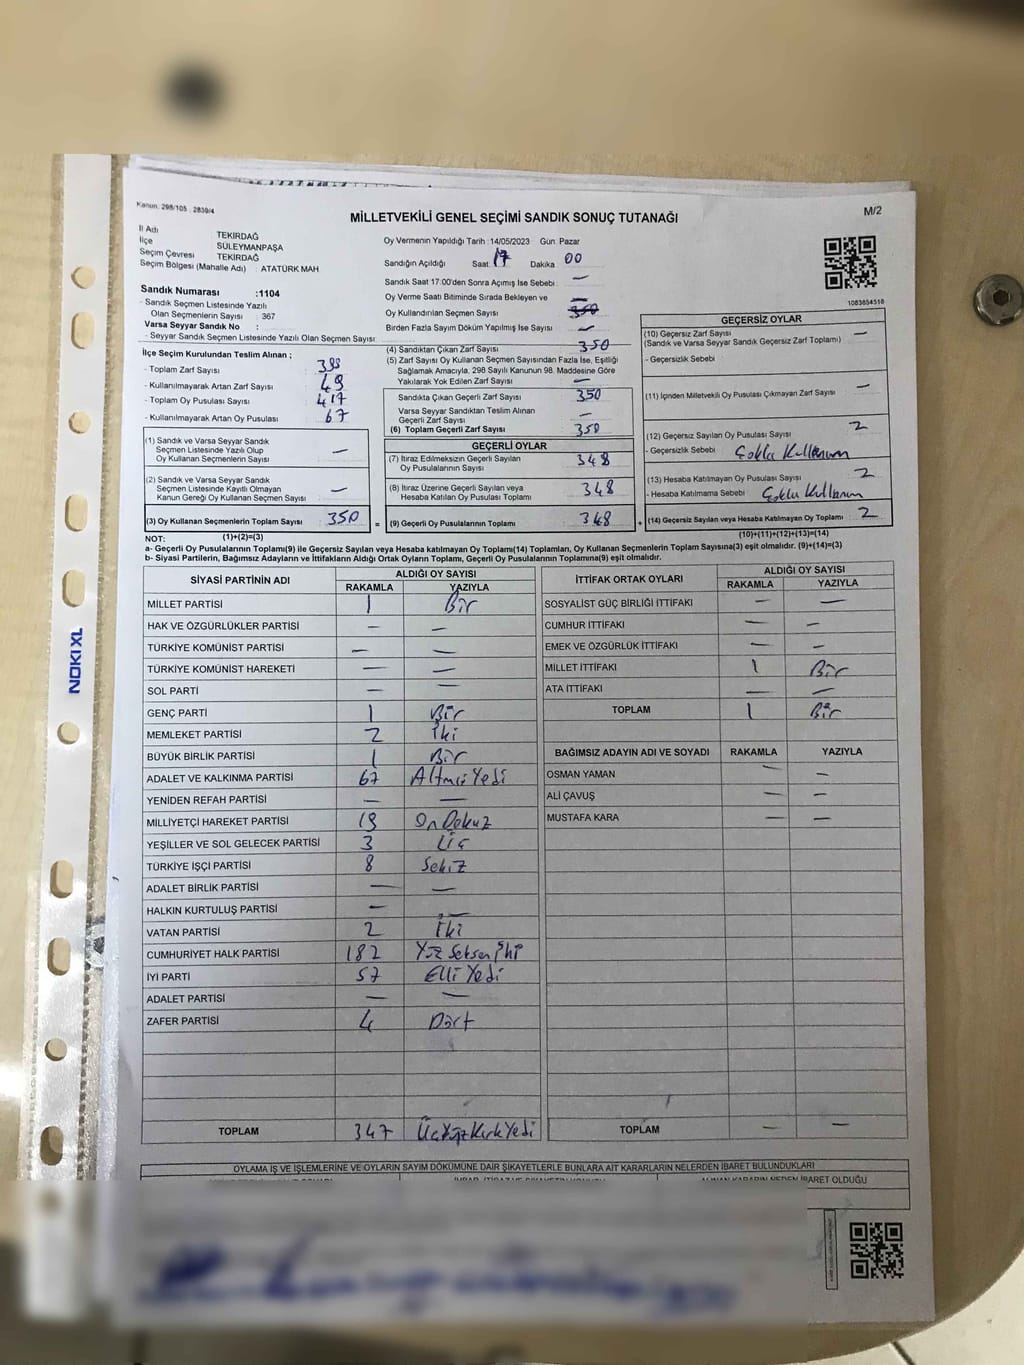 Kanun: 298/105 : 2839/4
MİLLETVEKİLİ GENEL SEÇİMİ SANDIK SONUÇ TUTANAĞI
M/2
İl Adı TEKİRDAĞ
İlçe SÜLEYMANPAŞA
Seçim Çevresi TEKİRDAĞ
Seçim Bölgesi (Mahalle Adı) : ATATÜRK MAH
Oy Vermenin Yapıldığı Tarih :14/05/2023 Gün: Pazar
Sandığın Açıldığı Saat: 17 Dakika: 00
Sandık Saat 17.00'den Sonra Açılmış İse Sebebi : —
Oy Verme Saati Bitiminde Sırada Bekleyen ve —
Oy Kullandırılan Seçmen Sayısı 350
Birden Fazla Sayım Döküm Yapılmış İse Sayısı —
1083854516
Sandık Numarası :1104
- Sandık Seçmen Listesinde Yazılı
Olan Seçmenlerin Sayısı : 367
Varsa Seyyar Sandık No :
- Seyyar Sandık Seçmen Listesinde Yazılı Olan Seçmen Sayısı:
İlçe Seçim Kurulundan Teslim Alınan ;
- Toplam Zarf Sayısı :
- Kullanılmayarak Artan Zarf Sayısı : 49
- Toplam Oy Pusulası Sayısı : 417
- Kullanılmayarak Artan Oy Pusulası : 67
(1) Sandık ve Varsa Seyyar Sandık
Seçmen Listesinde Yazılı Olup
Oy Kullanan Seçmenlerin Sayısı —
(2) Sandık ve Varsa Seyyar Sandık
Seçmen Listesinde Kayıtlı Olmayan
Kanun Gereği Oy Kullanan Seçmen Sayısı —
(3) Oy Kullanan Seçmenlerin Toplam Sayısı 350 =
(4) Sandıktan Çıkan Zarf Sayısı 350
(5) Zarf Sayısı Oy Kullanan Seçmen Sayısından Fazla İse, Eşitliği
Sağlamak Amacıyla, 298 Sayılı Kanunun 98. Maddesine Göre
Yakılarak Yok Edilen Zarf Sayısı —
Sandıkta Çıkan Geçerli Zarf Sayısı 350
Varsa Seyyar Sandıktan Teslim Alınan
Geçerli Zarf Sayısı —
(6) Toplam Geçerli Zarf Sayısı 350
GEÇERLİ OYLAR
(7) İtiraz Edilmeksizin Geçerli Sayılan
Oy Pusulalarının Sayısı 348
(8) İtiraz Üzerine Geçerli Sayılan veya
Hesaba Katılan Oy Pusulası Toplamı 348
(9) Geçerli Oy Pusulalarının Toplamı 348 +
GEÇERSİZ OYLAR
(10) Geçersiz Zarf Sayısı —
(Sandık ve Varsa Seyyar Sandık Geçersiz Zarf Toplamı)
- Geçersizlik Sebebi
(11) İçinden Milletvekili Oy Pusulası Çıkmayan Zarf Sayısı —
(12) Geçersiz Sayılan Oy Pusulası Sayısı 2
- Geçersizlik Sebebi Çoklu Kullanım
(13) Hesaba Katılmayan Oy Pusulası Sayısı 2
- Hesaba Katılmama Sebebi Çoklu Kullanım
(14) Geçersiz Sayılan veya Hesaba Katılmayan Oy Toplamı 2
NOT: (1)+(2)=(3) (10)+(11)+(12)+(13)=(14)
a- Geçerli Oy Pusulasının Toplamı(9) ile Geçersiz Sayılan veya Hesaba katılmayan Oy Toplamı(14) Toplamları, Oy Kullanan Seçmenlerin Toplam Sayısına(3) eşit olmalıdır. (9)+(14)=(3)
b- Siyasi Partilerin, Bağımsız Adayların ve İttifakların Aldığı Ortak Oyların Toplamı, Geçerli Oy Pusulalarının Toplamına(9) eşit olmalıdır.
SİYASİ PARTİNİN ADI ALDIĞI OY SAYISI
RAKAMLA YAZIYLA
MİLLET PARTİSİ 1 Bir
HAK VE ÖZGÜRLÜKLER PARTİSİ — —
TÜRKİYE KOMÜNİST PARTİSİ — —
TÜRKİYE KOMÜNİST HAREKETİ — —
SOL PARTİ — —
GENÇ PARTİ 1 Bir
MEMLEKET PARTİSİ 2 İki
BÜYÜK BİRLİK PARTİSİ 1 Bir
ADALET VE KALKINMA PARTİSİ 67 Altmış Yedi
YENİDEN REFAH PARTİSİ — —
MİLLİYETÇİ HAREKET PARTİSİ 19 On Dokuz
YEŞİLLER VE SOL GELECEK PARTİSİ 3 Üç
TÜRKİYE İŞÇİ PARTİSİ 8 Sekiz
ADALET BİRLİK PARTİSİ — —
HALKIN KURTULUŞ PARTİSİ — —
VATAN PARTİSİ 2 İki
CUMHURİYET HALK PARTİSİ 182 Yüz Seksen İki
İYİ PARTİ 57 Elli Yedi
ADALET PARTİSİ — —
ZAFER PARTİSİ 4 Dört
TOPLAM 347 Üç Yüz Kırk Yedi
İTTİFAK ORTAK OYLARI ALDIĞI OY SAYISI
RAKAMLA YAZIYLA
SOSYALİST GÜÇ BİRLİĞİ İTTİFAKI — —
CUMHUR İTTİFAKI — —
EMEK VE ÖZGÜRLÜK İTTİFAKI — —
MİLLET İTTİFAKI 1 Bir
ATA İTTİFAKI — —
TOPLAM 1 Bir
BAĞIMSIZ ADAYIN ADI VE SOYADI RAKAMLA YAZIYLA
OSMAN YAMAN — —
ALİ ÇAVUŞ — —
MUSTAFA KARA — —
TOPLAM — —
OYLAMA İŞ VE İŞLEMLERİNE VE OYLARIN SAYIM DÖKÜMÜNE DAİR ŞİKAYETLERLE BUNLARA AİT KARARLARIN NELERDEN İBARET BULUNDUKLARI
ALINAN KARARIN NEDEN İBARET OLDUĞU
NOKI XL